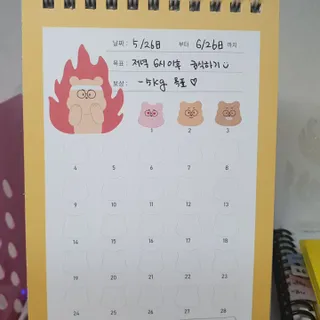 날짜 : 5/26일 부터 6/26일 까지
목표 : 저녁 6시 이후 금식하기
보상 : -5kg 목표 ♡
1 2 3
4 5 6 7 8
9 10 11 12 13
14 15 16 17 18
19 20 21 22 23
24 25 26 27 28